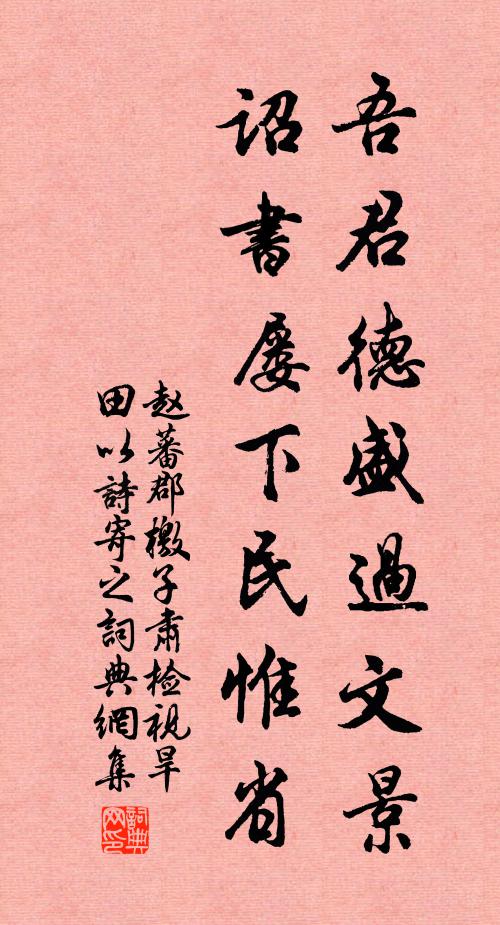 吾君德盛過文景
詔書屢下民惟省
赵蕃郡檄子肅检視旱
田以詩寄之詞典網集
詞典网印